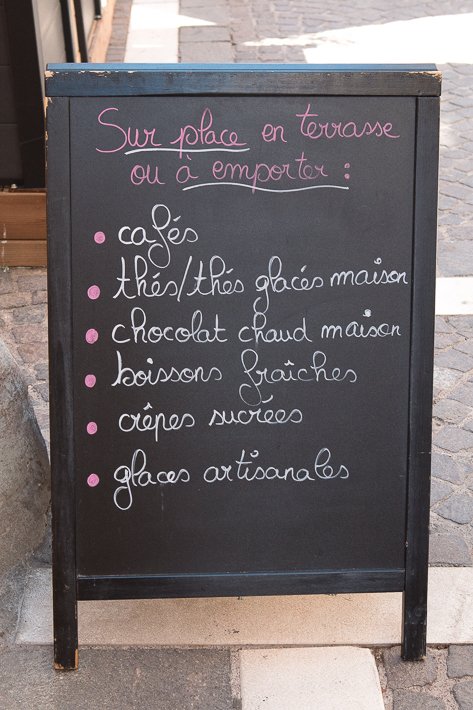 Sur place en terrasse
ou à emporter :
cafés
thés/thés glacés maison
chocolat chaud maison
boissons fraîches
crêpes sucrées
glaces artisanales